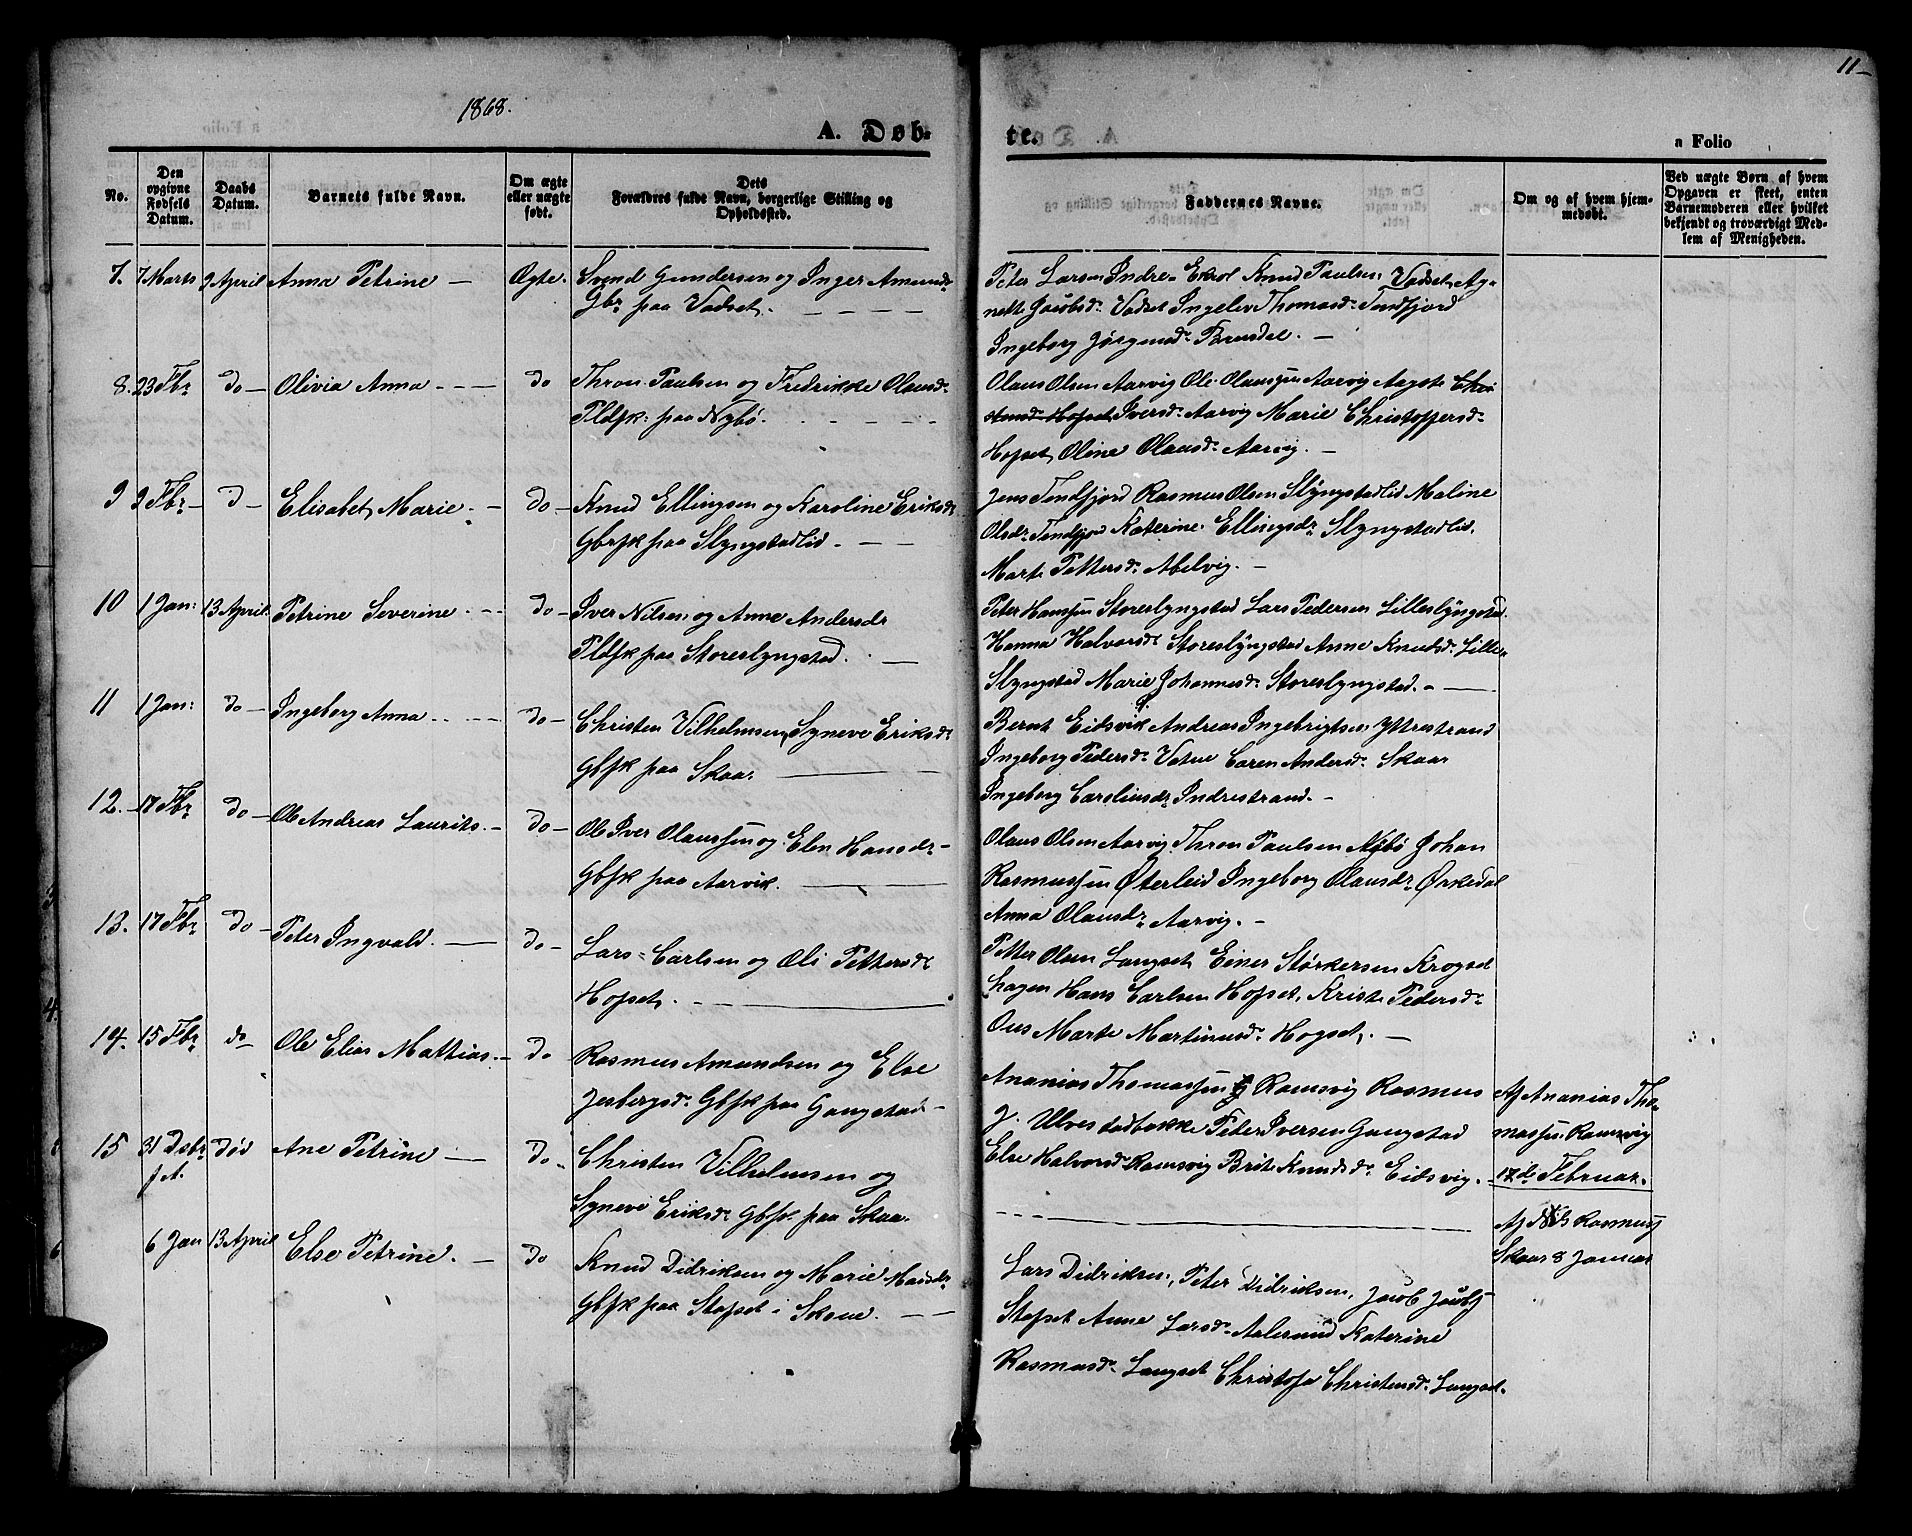 1868.
11-
A. Døb-
te.
a Folio
No.
Den opgivne Fødsels Datum.
Daabs Datum.
Barnets fulde Navn.
Om ægte eller uægte født.
Dets Forældres fulde Navn, borgerlige Stilling og Opholdssted.
Faddernes Navne.
Om og af hvem hjem-
medøbt.
Ved uægte Børn af hvem
Opgaven er skeet, enten
Barnemoderen eller hvilket
bekjendt og troværdigt Med-
lem af Menigheden.
7. 7 Marts 9 April Anna Petrine - Ægte. Svend Gundersen og Inger Amunds
Gbr paa Vadset.
Peter Larsen Indre- Ekrol Knud Paulsen Vadset, Ag-
nethe Jacobsd. Vadset Ingelev Thomasd. Tendfjord
Ingeborg Jørgensd. Brusdal. -
8. 23 Fbr do - Olivia Anna - do Thron Paulsen og Fredrikke Olausd.
Pldsfk. paa Nybø.
Olaus Olsen Aarvig Ole Olaussen Aarvig Aagste Chri
stensd. Hofset, Iversd. Aarvig Marie Christoffersd.
Hofset, Oline Olausd. Aarvig. -
9 9 Fbr - do - Elisabet, Marie. - do - Knud Ellingsen og Karoline Eriksdr
Gbrfk paa Slyngstadlid. -
Jens Tendfjord Rasmus Olsen Slyngstadlid Maline
Olsdr. Tendfjord Katerine Ellingsdr. Slyngstadlid.
Marte Pettersd. Abelvig. -
10 1 Jan: 13 April. Petrine Severine. - do - Iver Nilsen og Anne Andersdr
Pldsfk paa Storeslyngstad. -
Peter Hanssen Storeslyngstad Lars Pedersen Lilleslyngstad.
Hanna Halvorsdr Storeslyngstad Anne Knudsd. Lille-
Slyngstad Marie Johannesd. Storeslyngstad. -
11 1 Jan: do - Ingeborg Anna - do - Christen Vilhelmsen, Syneve Eriksd.
Gbfk paa Skaar.
Bernt Eidsvik Andreas Ingebrigtsen Yttrestrand
Ingeborg Pedersd. Vatne Caren Andersd. Skaar
Ingeborg Carolinusdr. Indrestrand. -
12. 18 Fbr do - Ole Andreas Laurits. - do - Ole Iver Olaussen og Elen Hansdr -
Gbfk paa Aarvik.
Olaus Olsen Aarvig Thron Paulsen Nybø Johan
Rasmussen Østerleid Ingeborg Olausdr. Ørkedal
Anna Olausdr. Aarvig. -
13. 17 Fbr do - Peter Ingvald. - do - Lars Carlsen og Oli Pettersdr
Hofset.
Petter Olsen Langset, Einer Størkersen Krogset
hagen Hans Carlsen Hofset, Kriste Pedersd.
Ous Marte Martinusd. Hogset. -
14. 15 Fbr do Ole Elias Mattias. - do Rasmus Amundsen og Else
Jesbergsd. Gbfk paa Gangstad -
Ananias Thomassen Ramsvig Rasmus
J. Ulvestadbakke Peder Iversen Gangstad
Else Halvorsd. Ramsvig Brit Knudsd. Eidsvig. -
Af Ananias Tho-
massen Ramsvig
17de Februar.
15 31 Dsbr
f.A. død Ane Petrine - do - Christen Vilhelmsen og
Syneve Eriksd. Gbfk. paa Skaar.
Af Nils Rasmuss
Skaar 8 Januar
6 Jan 13 April Else Petrine. - do Knud Didriksen og Marie Hansdr
Gbfk paa Stofset i Skoue. -
Lars Didriksen, Peter Didriksen, Jacob Jacobs
Stofset Anne Larsd. Aalesund Katerine
Rasmusd. Langset Christofa Christensd. Langset.